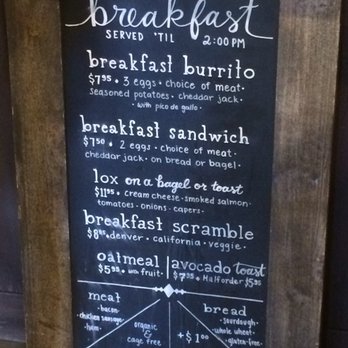 breakfast
SERVED 'TIL 2:00 PM
breakfast burrito
$7.95 • 3 eggs • choice of meat •
seasoned potatoes • cheddar jack •
• with pico de gallo •
breakfast sandwich
$7.50 • 2 eggs • choice of meat •
cheddar jack • on bread or bagel •
lox on a bagel or toast
$11.95 • cream cheese • smoked salmon •
tomatoes • onions • capers •
breakfast scramble
$8.95 • denver • california • veggie •
oatmeal | avocado toast
$5.95 • with fruit • | $7.95 • Half order $5.95
meat
• bacon •
• chicken sausage •
• ham •
organic
&
cage free
+$1.00
bread
• sourdough •
• whole wheat •
• gluten-free •